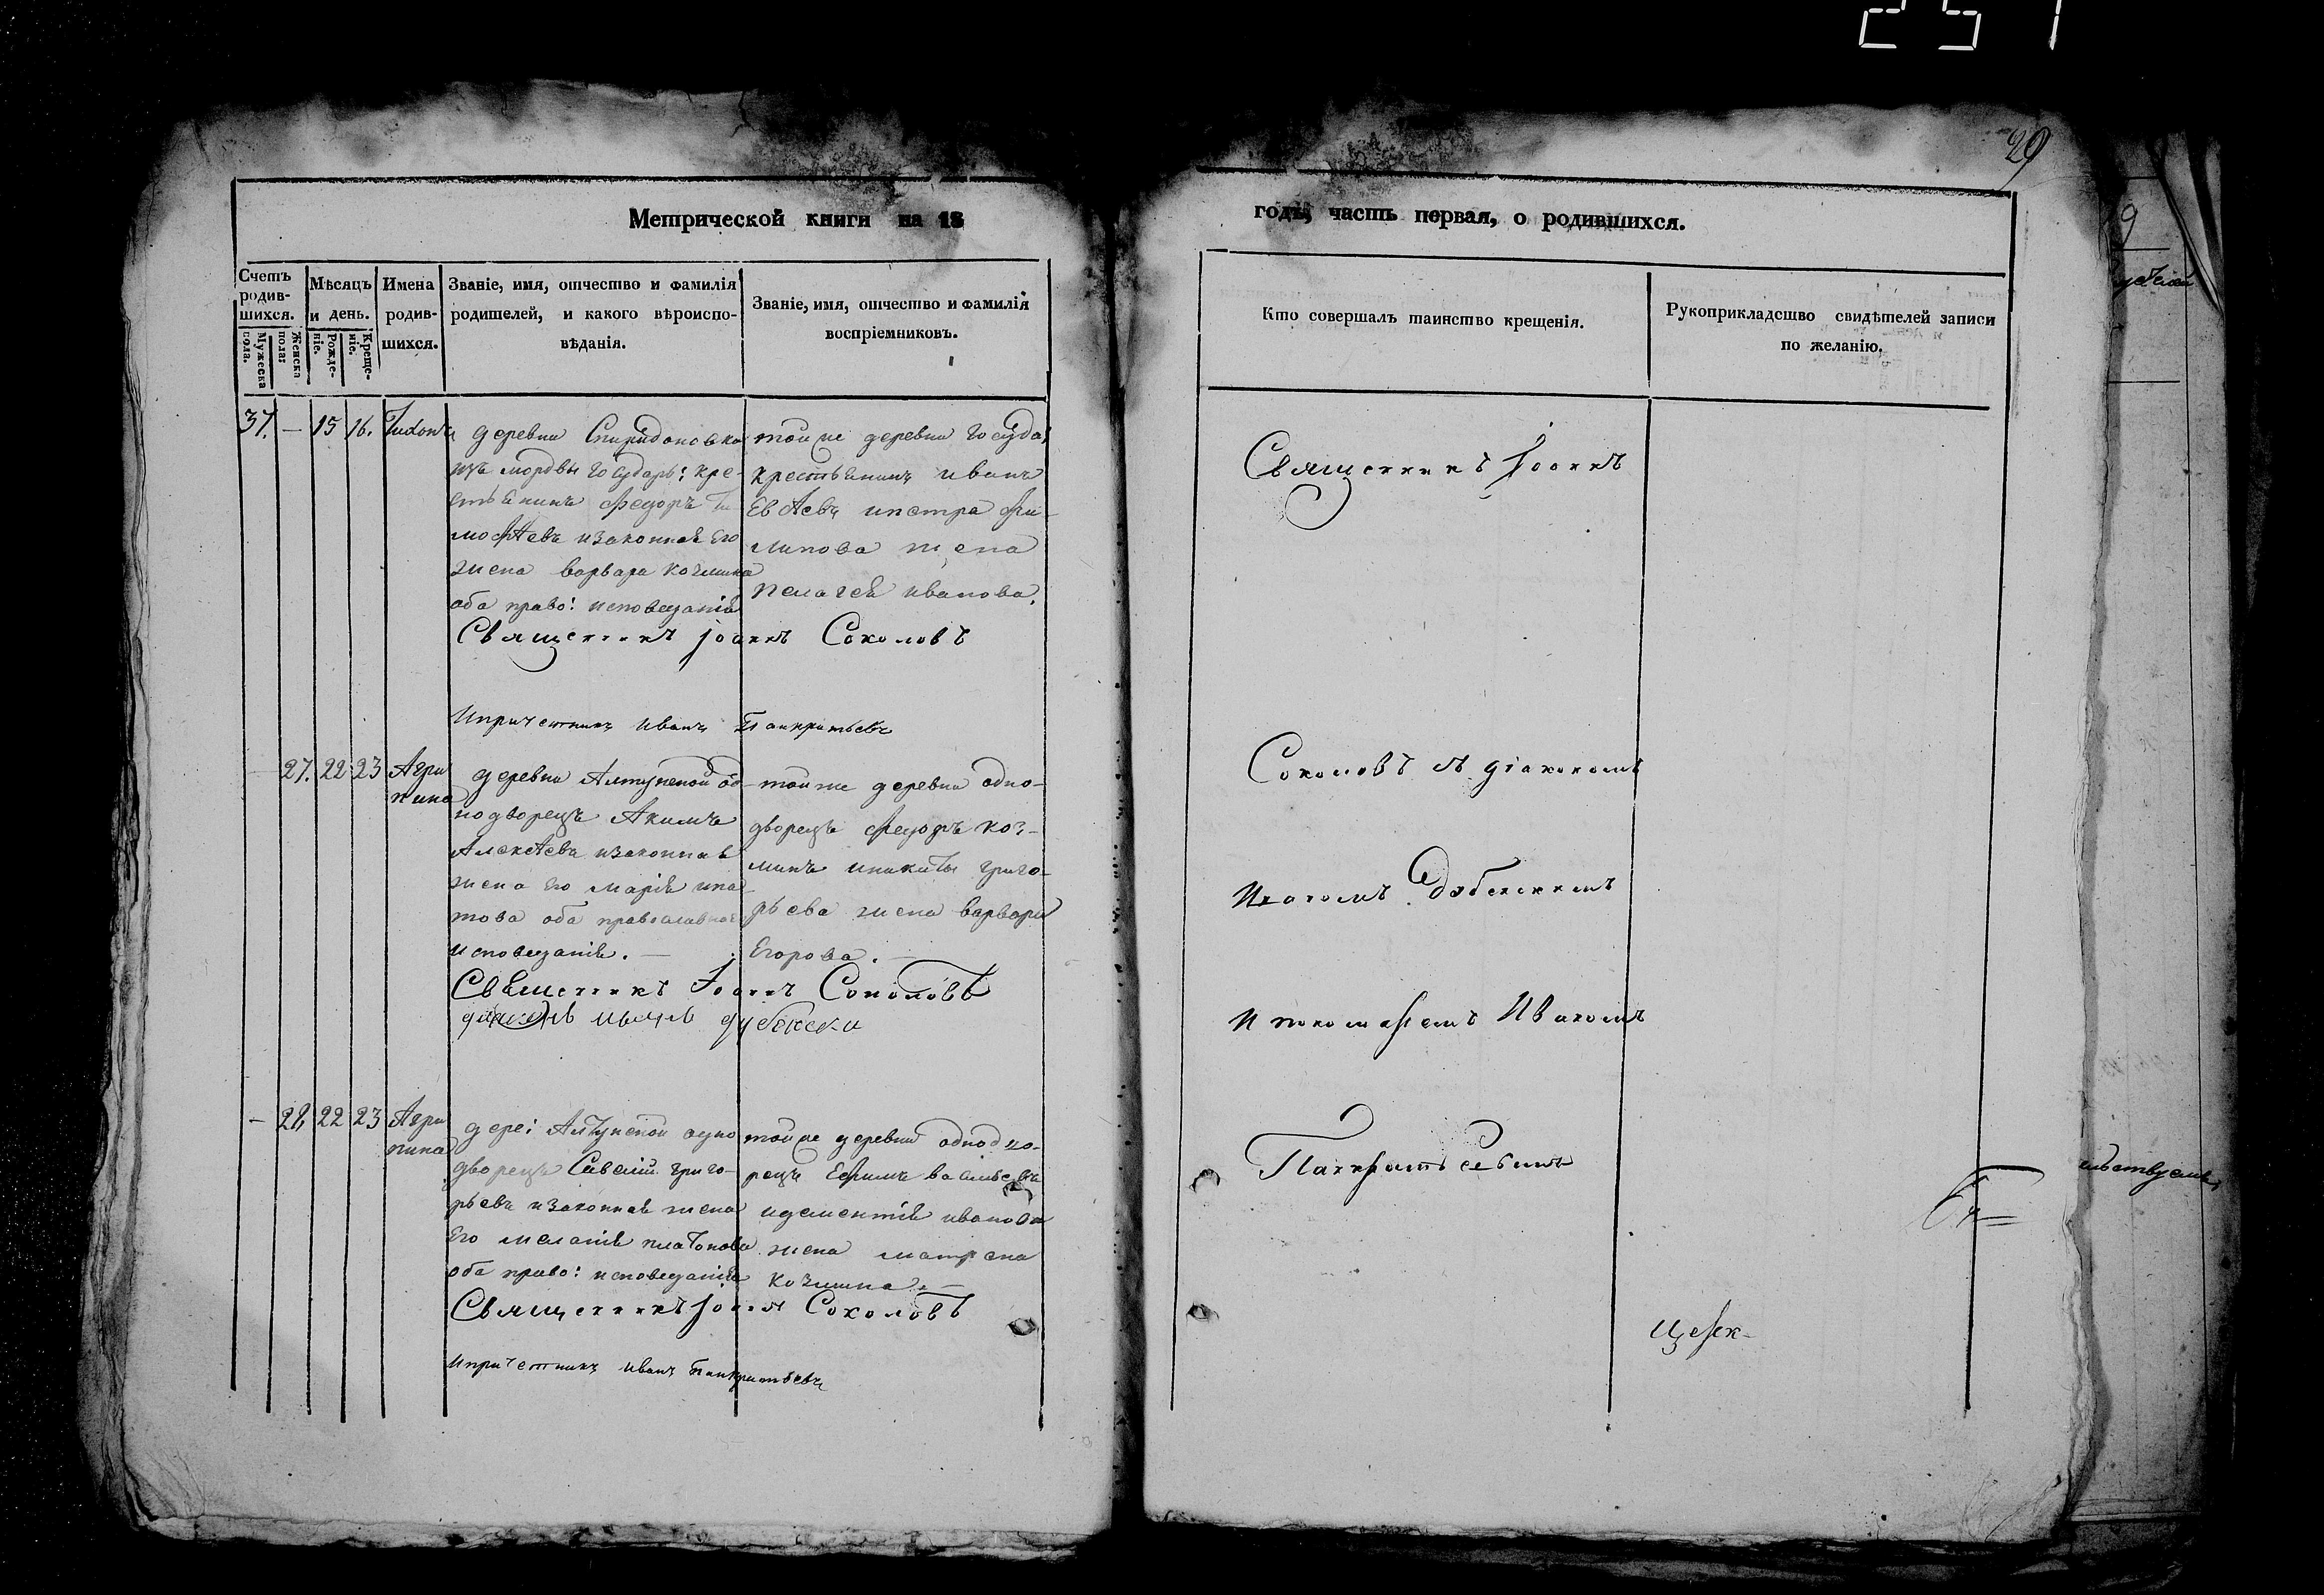 251
29
Метрической книги на 18
годъ, часть первая, о родившихся.
Счетъ родив-шихся.
Мужеска пола.
Женска пола:
Мѣсяцъ и день.
Рожде-ніе.
Креще-ніе.
Имена родив-шихся.
Званіе, имя, отчество и фамилія
родителей, и какого вѣроиспо-
вѣданія.
Званіе, имя, отчество и фамилія
воспріемниковъ.
Кто совершалъ таинство крещенія.
Рукоприкладство свидѣтелей записи
по желанію.
37. — 15 16. Тихонъ
деревни Спиридоновки
изъ мордвы государ: кре-
стьянинъ Федоръ Ти
мофѣевъ изаконная Его
жена варвара козмина
оба право: исповеданія
тойже деревни государ:
крестьянинъ иванъ
Евсѣевъ ипетра Фи-
липова жена
пелагея иванова.
Священникъ Іоаннъ Соколовъ
Ипричетникъ иванъ Панкратьевъ
— 27. 22 23 Агри
пина
деревни Алтунской од-
нодворецъ Акимъ
Алексѣевъ изаконная
жена Его марія ипа
това оба православнаго
исповеданія. —
тойже деревни одно-
дворецъ Федоръ коз-
минъ иникиты григо-
рьева жена варвара
Егорова. —
Священникъ Іоаннъ Соколовъ
— 28, 22 23 Агри
пина
дере: Алтунской одно
дворецъ Савелій григо-
рьевъ изаконная жена
Его меланія платонова
оба право: исповеданія
тойже деревни однодво-
рецъ Ефимъ васильевъ
идементія иванова
жена матрена
козмина. —
Священникъ Іоаннъ Соколовъ
Ипричетникъ иванъ Панкратьевъ
Священникъ Іоаннъ
Соколовъ съ діакономъ
И пономаремъ Иваномъ
Панкратьевымъ